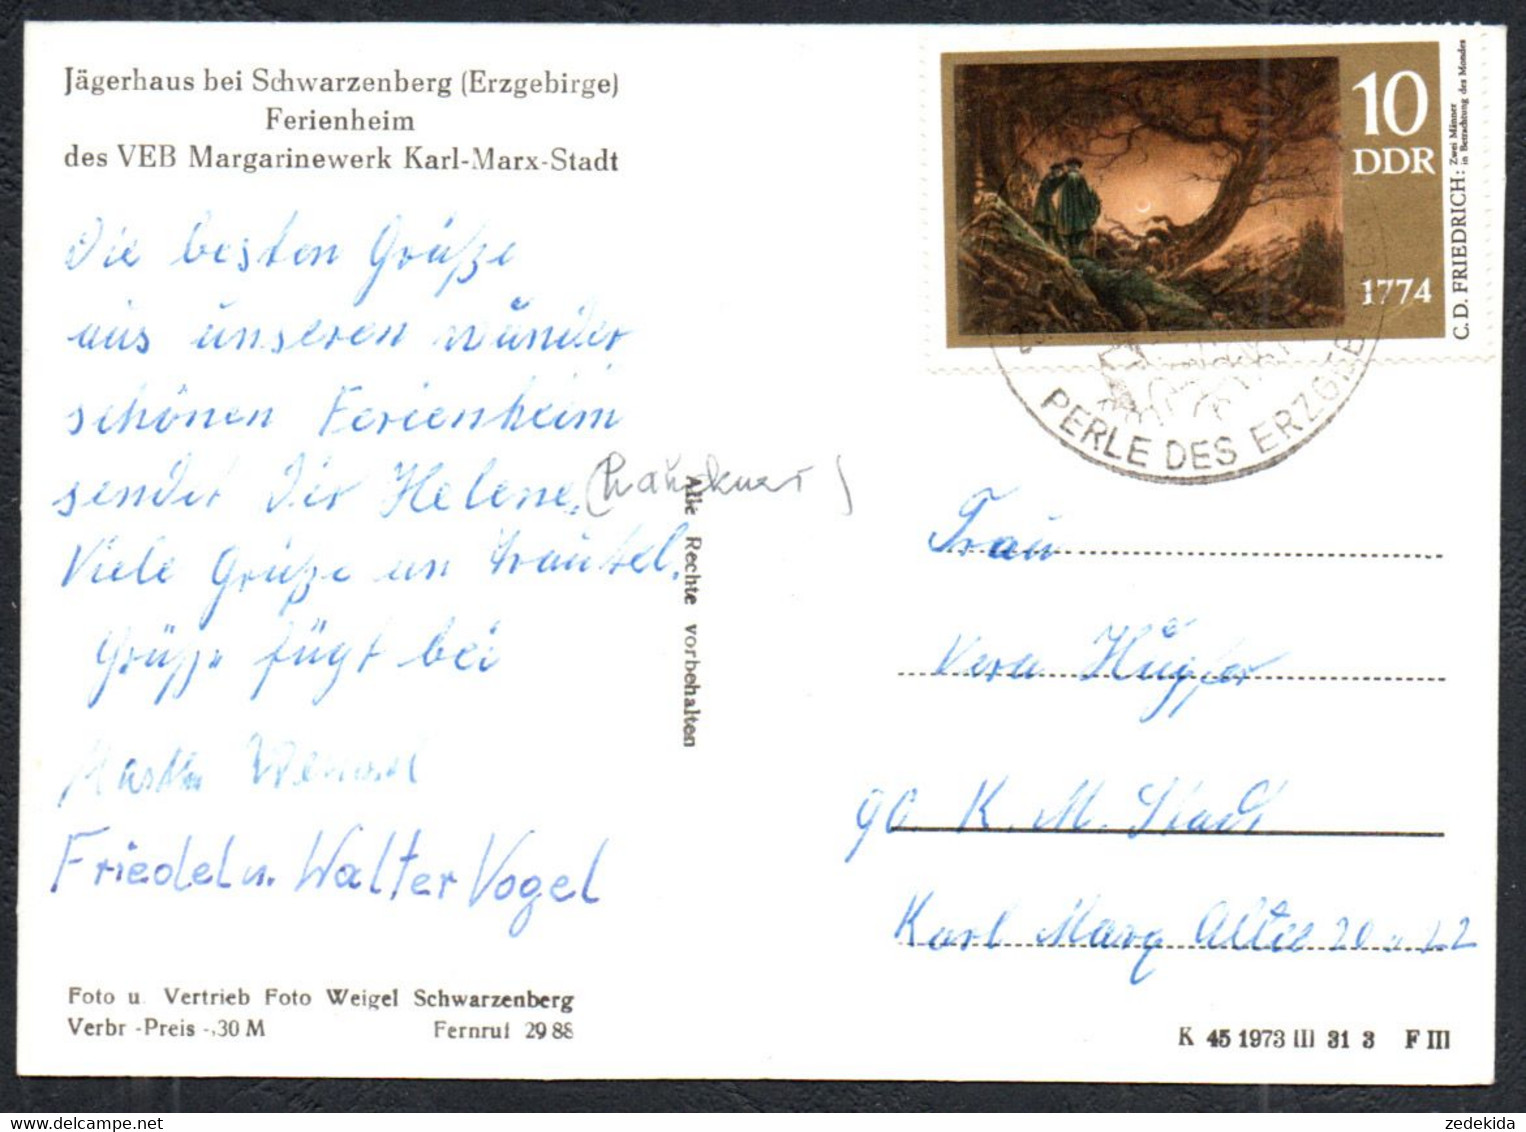 Jägerhaus bei Schwarzenberg (Erzgebirge)
Ferienheim
des VEB Margarinewerk Karl-Marx-Stadt
Die besten Grüße
aus unseren wunder
schönen Ferienheim
sendet Dir Helene.
Viele Grüße an Trautel.
Grüße fügt bei
Friedel u. Walter Vogel
Foto u. Vertrieb Foto Weigel Schwarzenberg
Verbr.-Preis -,30 M Fernruf 29 88
Alle Rechte vorbehalten
10
DDR
1774
C. D. FRIEDRICH: Zwei Männer
in Betrachtung des Mondes
PERLE DES ERZGEB
Frau
Vera
90 K. M. Stadt
Karl Marx Allee 20 u 22
K 45 1973 III 31 3 F III
zedekida